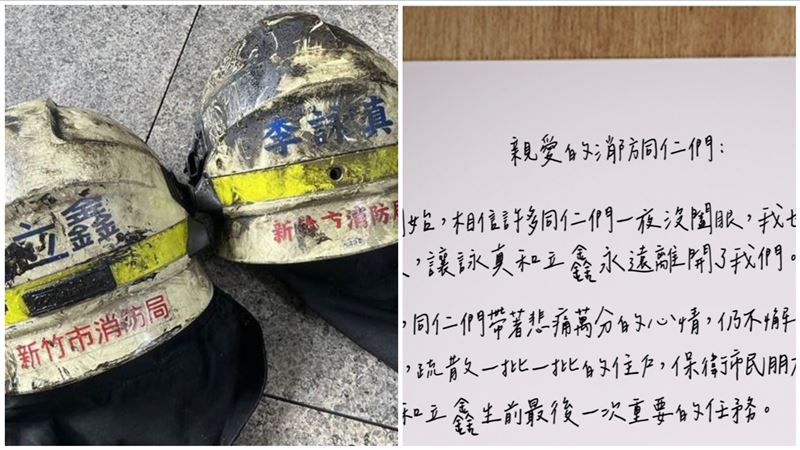 李詠真
新竹市消防局
立鑫
新竹市消防局
親愛的消防同仁們：
始，相信許多同仁們一夜沒闔眼，我也
，讓詠真和立鑫永遠離開了我們。
，同仁們帶著悲痛萬分的心情，仍不懈
，疏散一批一批的住戶，保衛市民朋
和立鑫生前最後一次重要的任務。